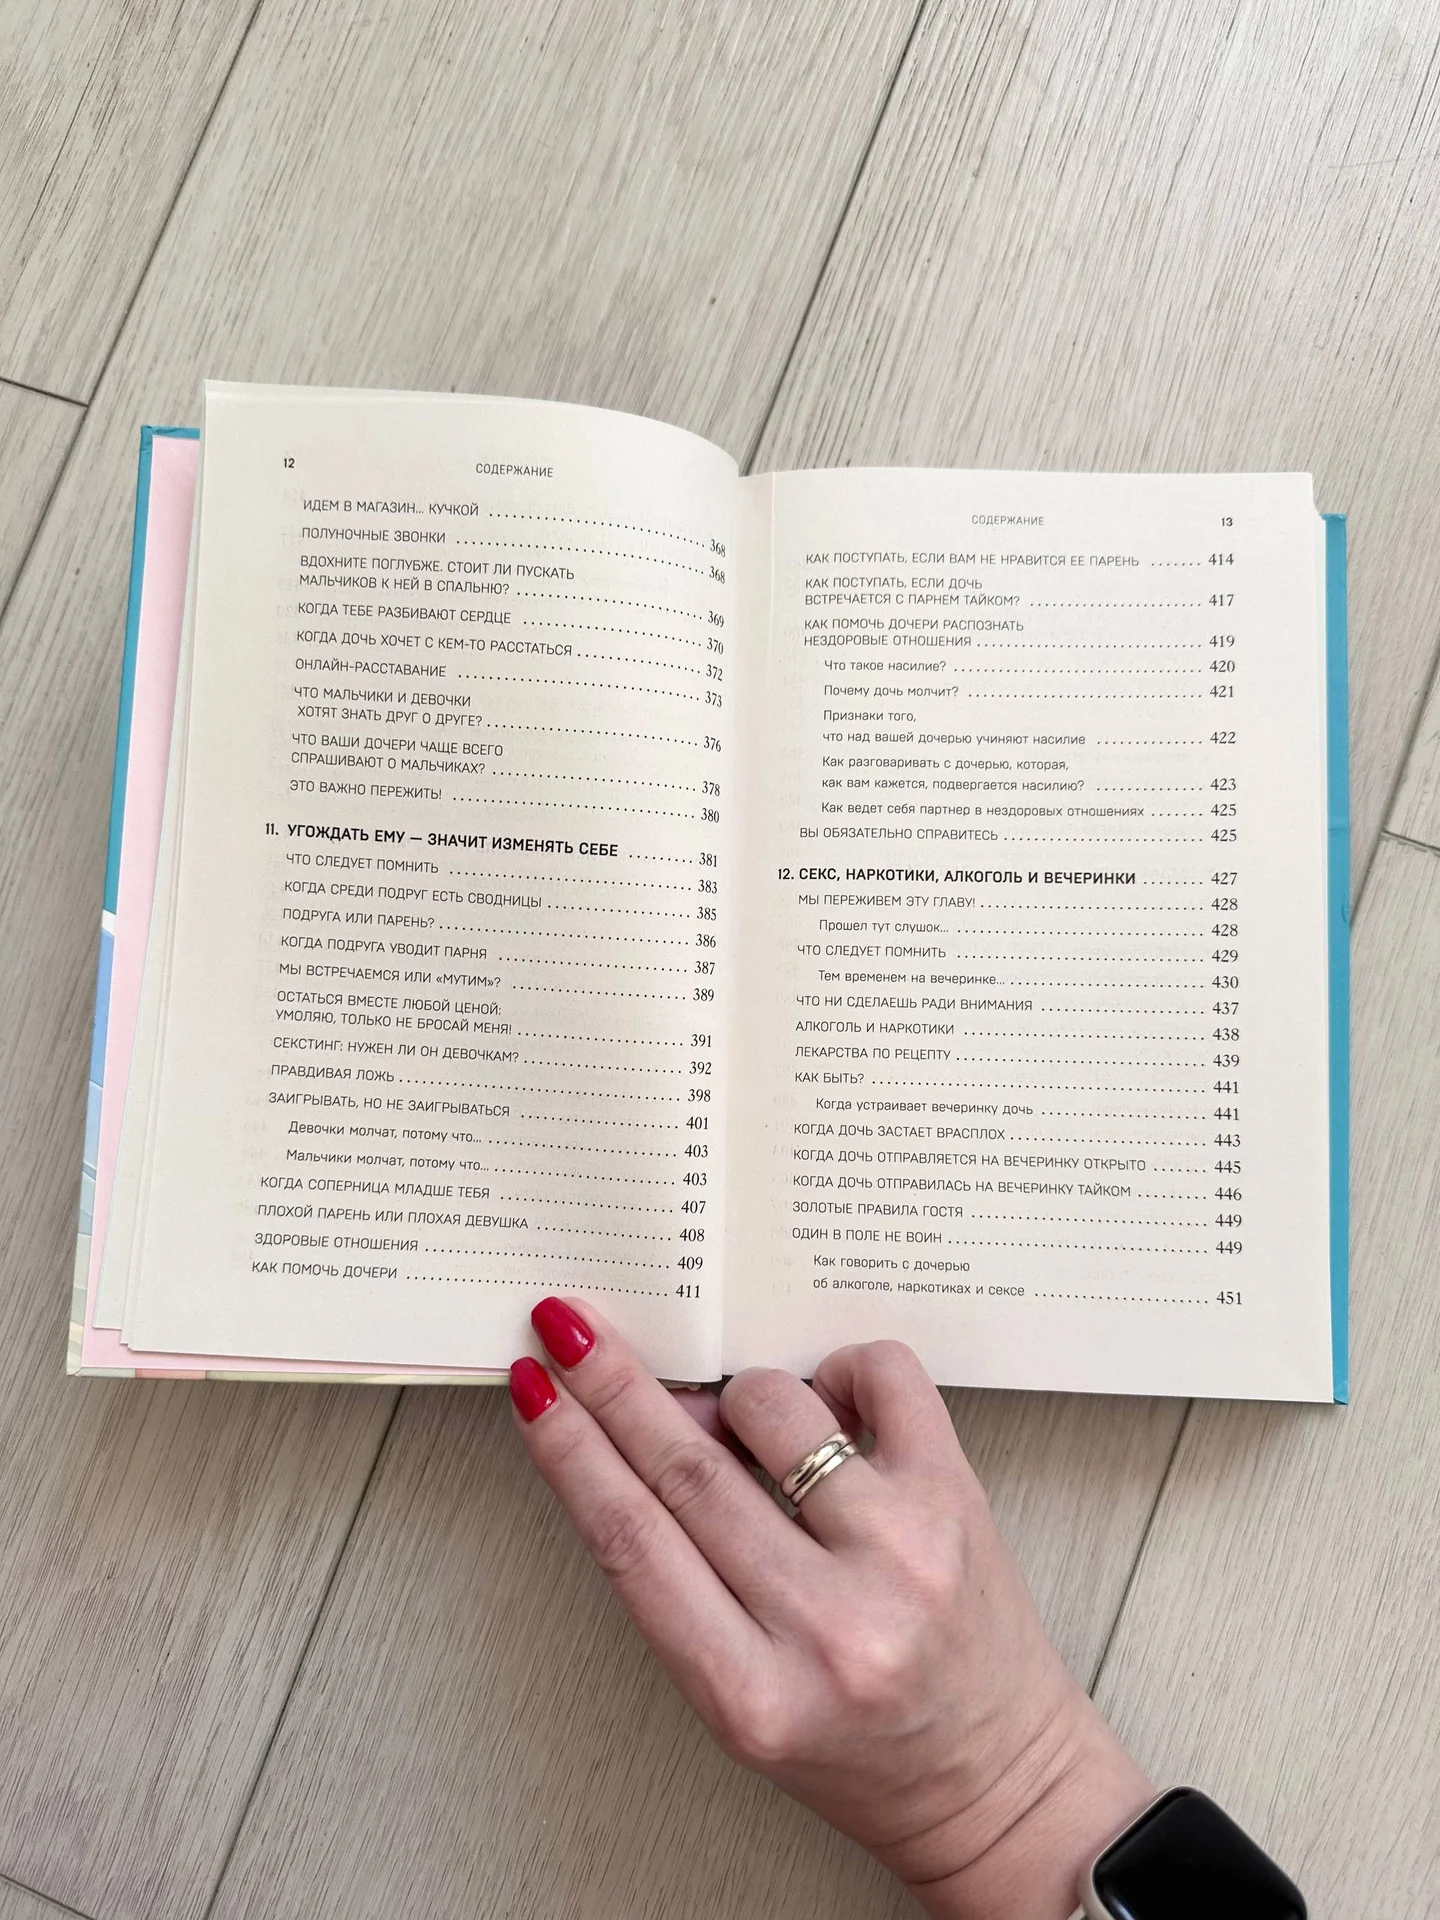 12
СОДЕРЖАНИЕ
ИДЕМ В МАГАЗИН... КУЧКОЙ ..... 368
ПОЛУНОЧНЫЕ ЗВОНКИ ..... 368
ВДОХНИТЕ ПОГЛУБЖЕ. СТОИТ ЛИ ПУСКАТЬ
МАЛЬЧИКОВ К НЕЙ В СПАЛЬНЮ? ..... 369
КОГДА ТЕБЕ РАЗБИВАЮТ СЕРДЦЕ ..... 370
КОГДА ДОЧЬ ХОЧЕТ С КЕМ-ТО РАССТАТЬСЯ ..... 372
ОНЛАЙН-РАССТАВАНИЕ ..... 373
ЧТО МАЛЬЧИКИ И ДЕВОЧКИ
ХОТЯТ ЗНАТЬ ДРУГ О ДРУГЕ? ..... 376
ЧТО ВАШИ ДОЧЕРИ ЧАЩЕ ВСЕГО
СПРАШИВАЮТ О МАЛЬЧИКАХ? ..... 378
ЭТО ВАЖНО ПЕРЕЖИТЬ! ..... 380
11. УГОЖДАТЬ ЕМУ — ЗНАЧИТ ИЗМЕНЯТЬ СЕБЕ ..... 381
ЧТО СЛЕДУЕТ ПОМНИТЬ ..... 383
КОГДА СРЕДИ ПОДРУГ ЕСТЬ СВОДНИЦЫ ..... 385
ПОДРУГА ИЛИ ПАРЕНЬ? ..... 386
КОГДА ПОДРУГА УВОДИТ ПАРНЯ ..... 387
МЫ ВСТРЕЧАЕМСЯ ИЛИ «МУТИМ»? ..... 389
ОСТАТЬСЯ ВМЕСТЕ ЛЮБОЙ ЦЕНОЙ:
УМОЛЯЮ, ТОЛЬКО НЕ БРОСАЙ МЕНЯ! ..... 391
СЕКСТИНГ: НУЖЕН ЛИ ОН ДЕВОЧКАМ? ..... 392
ПРАВДИВАЯ ЛОЖЬ ..... 398
ЗАИГРЫВАТЬ, НО НЕ ЗАИГРЫВАТЬСЯ ..... 401
Девочки молчат, потому что... ..... 403
Мальчики молчат, потому что... ..... 403
КОГДА СОПЕРНИЦА МЛАДШЕ ТЕБЯ ..... 407
ПЛОХОЙ ПАРЕНЬ ИЛИ ПЛОХАЯ ДЕВУШКА ..... 408
ЗДОРОВЫЕ ОТНОШЕНИЯ ..... 409
КАК ПОМОЧЬ ДОЧЕРИ ..... 411
СОДЕРЖАНИЕ
13
КАК ПОСТУПАТЬ, ЕСЛИ ВАМ НЕ НРАВИТСЯ ЕЕ ПАРЕНЬ ..... 414
КАК ПОСТУПАТЬ, ЕСЛИ ДОЧЬ
ВСТРЕЧАЕТСЯ С ПАРНЕМ ТАЙКОМ? ..... 417
КАК ПОМОЧЬ ДОЧЕРИ РАСПОЗНАТЬ
НЕЗДОРОВЫЕ ОТНОШЕНИЯ ..... 419
Что такое насилие? ..... 420
Почему дочь молчит? ..... 421
Признаки того,
что над вашей дочерью учиняют насилие ..... 422
Как разговаривать с дочерью, которая,
как вам кажется, подвергается насилию? ..... 423
Как ведет себя партнер в нездоровых отношениях ..... 425
ВЫ ОБЯЗАТЕЛЬНО СПРАВИТЕСЬ ..... 425
12. СЕКС, НАРКОТИКИ, АЛКОГОЛЬ И ВЕЧЕРИНКИ ..... 427
МЫ ПЕРЕЖИВЕМ ЭТУ ГЛАВУ! ..... 428
Прошел тут слушок... ..... 428
ЧТО СЛЕДУЕТ ПОМНИТЬ ..... 429
Тем временем на вечеринке... ..... 430
ЧТО НИ СДЕЛАЕШЬ РАДИ ВНИМАНИЯ ..... 437
АЛКОГОЛЬ И НАРКОТИКИ ..... 438
ЛЕКАРСТВА ПО РЕЦЕПТУ ..... 439
КАК БЫТЬ? ..... 441
Когда устраивает вечеринку дочь ..... 441
КОГДА ДОЧЬ ЗАСТАЕТ ВРАСПЛОХ ..... 443
КОГДА ДОЧЬ ОТПРАВЛЯЕТСЯ НА ВЕЧЕРИНКУ ОТКРЫТО ..... 445
КОГДА ДОЧЬ ОТПРАВИЛАСЬ НА ВЕЧЕРИНКУ ТАЙКОМ ..... 446
ЗОЛОТЫЕ ПРАВИЛА ГОСТЯ ..... 449
ОДИН В ПОЛЕ НЕ ВОИН ..... 449
Как говорить с дочерью
об алкоголе, наркотиках и сексе ..... 451